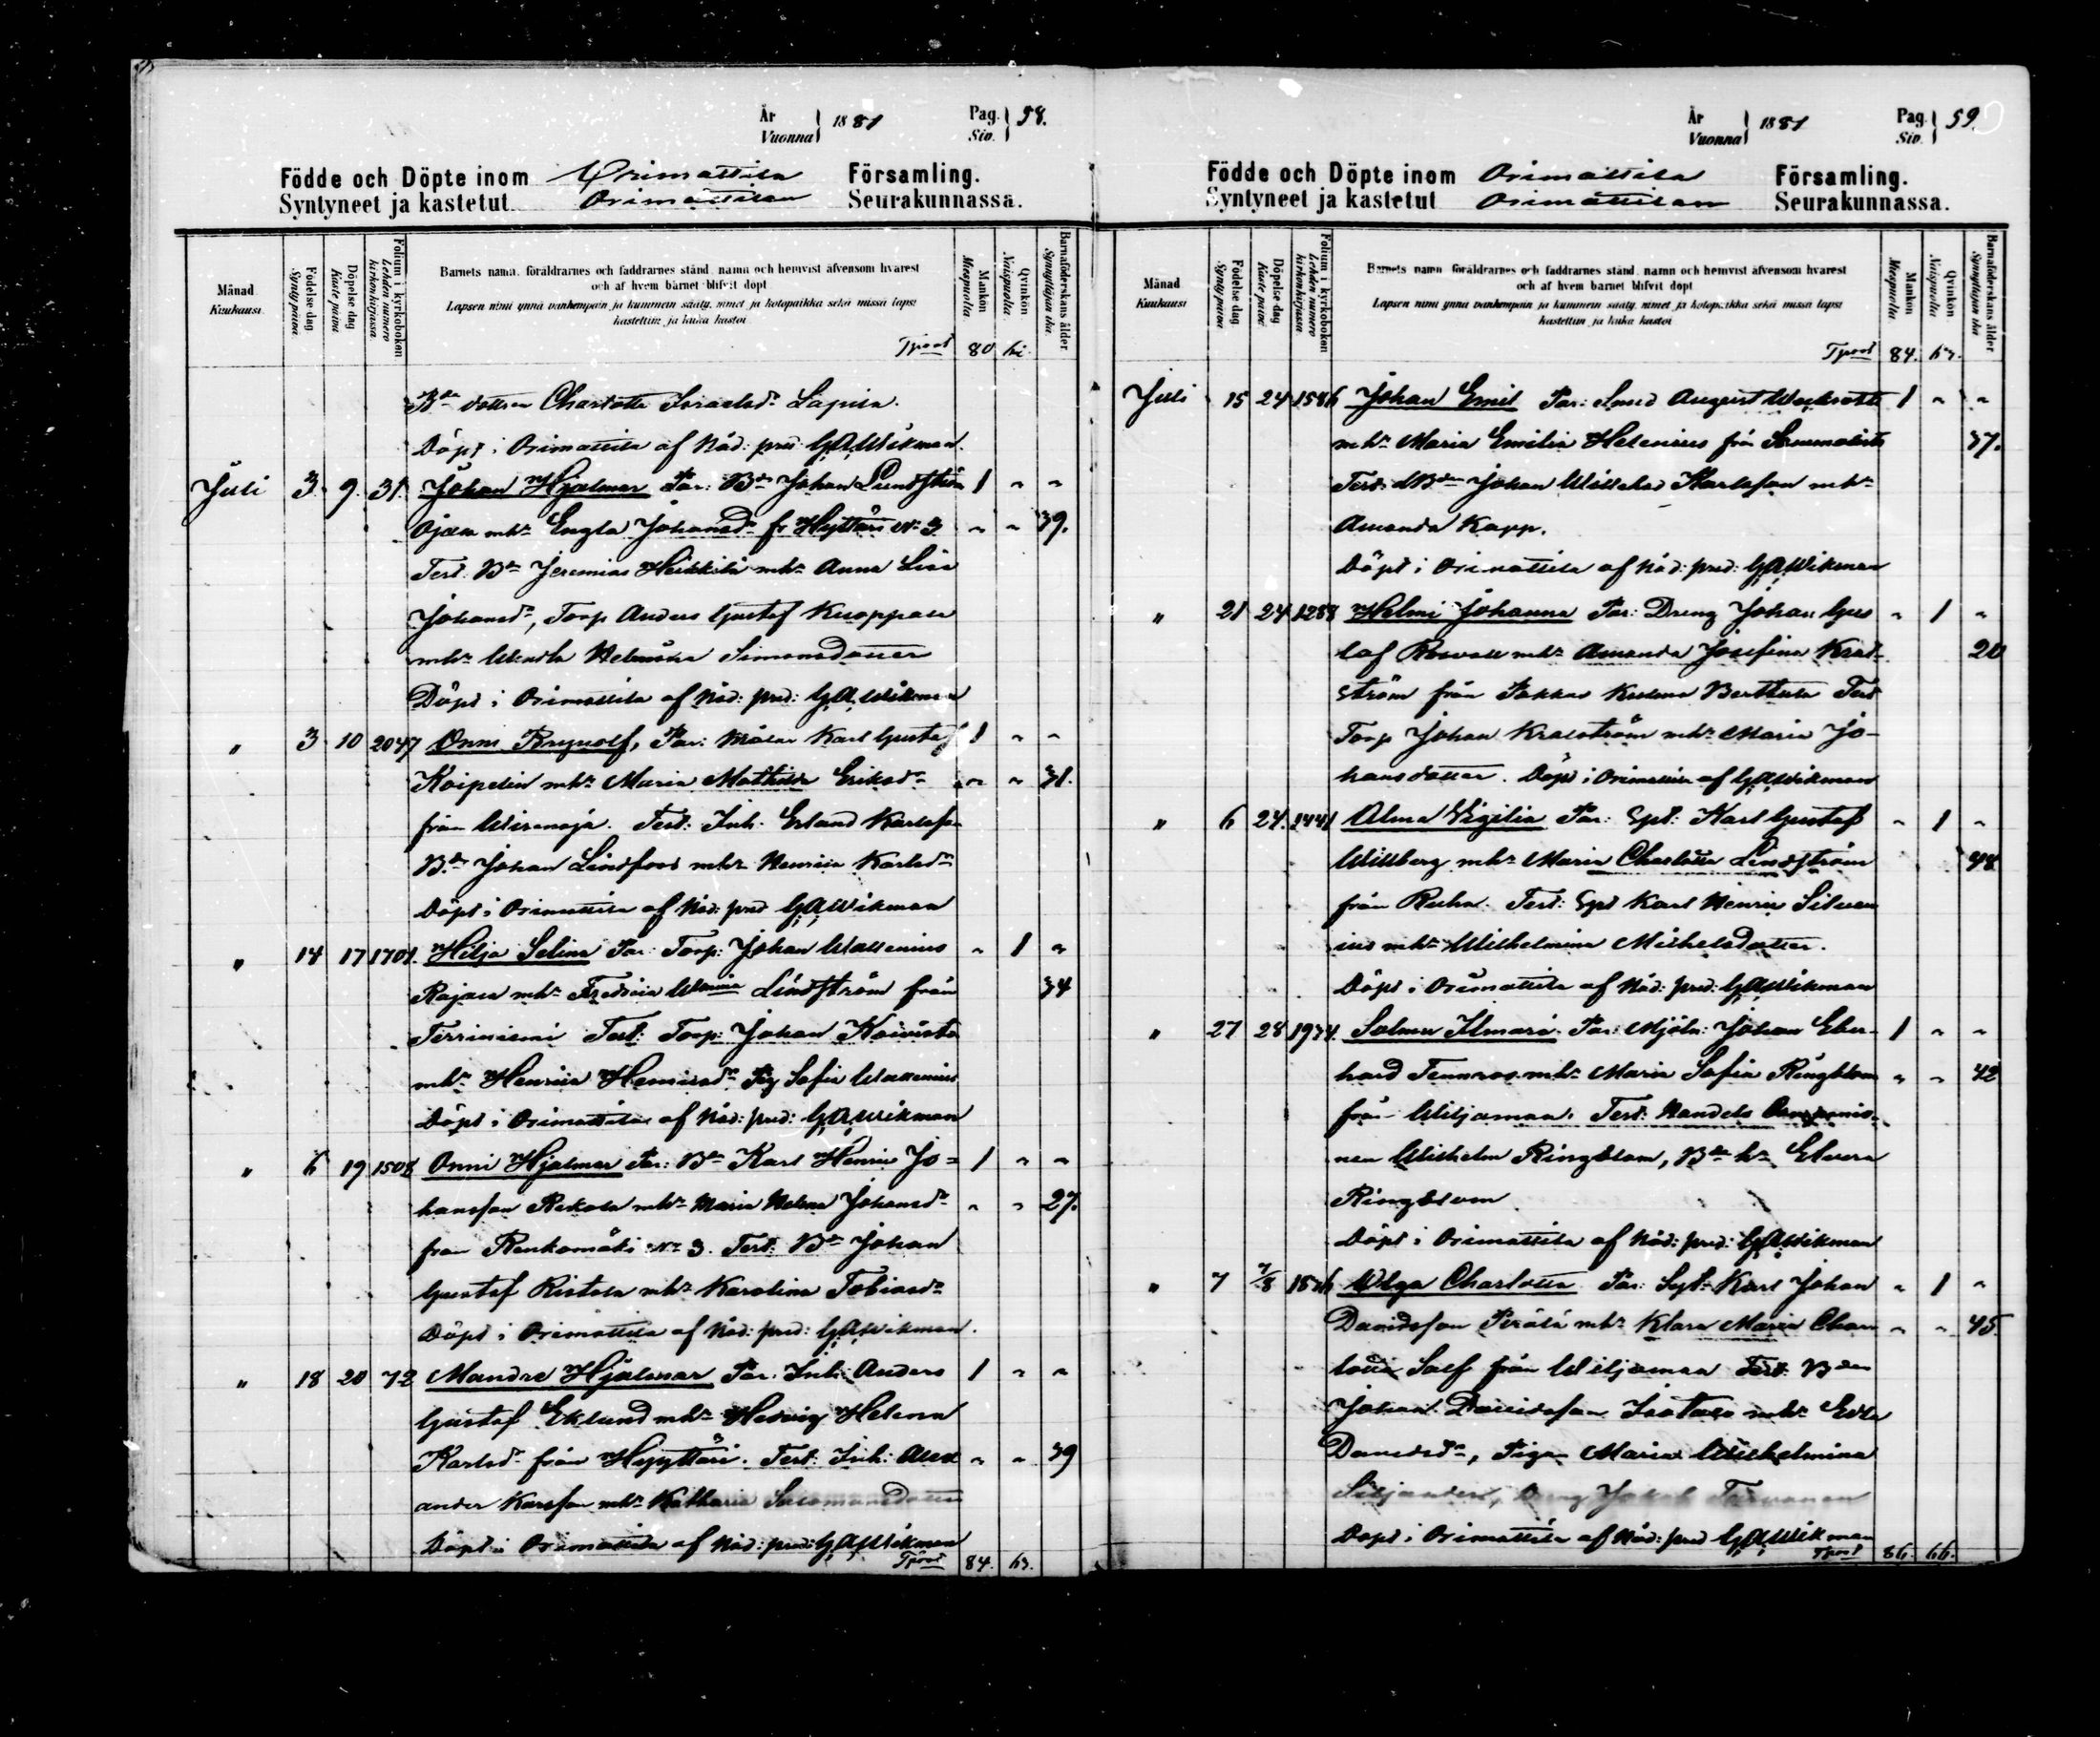 År
Vuonna } 1881
Pag.
Siv. } 58.
Födde och Döpte inom Orimattila Församling.
Syntyneet ja kastetut Orimattilan Seurakunnassa.
Månad
Kuukausi.
Födelse dag
Synty päivä
Döpelse dag
Kaste päivä
Folium i kyrkoboken
Lehden numero
kirkonkirjassa
Barnets namn, föräldrarnes och faddrarnes stånd, namn och hemvist äfvensom hvarest
och af hvem barnet blifvit döpt
Lapsen nimi ynnä vanhempain ja kummein sääty, nimet ja kotopaikka sekä missä lapsi
kastettiin ja kuka kastoi
Mankön
Miespuolia
Qvinkön
Naispuolia
Barnaföderskans ålder
Synnyttäjän ikä
Tpoort 80
dottren Charlotta Israelsdr
Döpt i Orimattila af Nåd: pred: G,A,Wikman.
Juli 3. 9. 31. Johan Hjalmar Par: Bdn Johan Lundström 1 " "
Ojala mhu Engla Johansdr fr Hyttäri No 3 " " 39.
Test: Bdn Jeremias Heikkilä mhu Anna Lisa
Johansdr, Torp Anders Gustaf
mhu Helena Simonsdotter
Döpt i Orimattila af Nåd: pred: G,A,Wikman
" 3 10 2047 Onni Par: Karl Gustaf 1 " "
mhu Maria Mathilda Eriksdr " " 31.
från Wirenoja. Test: Inh. Erland Karlsson
Bdn Johan Lindfors mhu Henrica Karlsdr
Döpt i Orimattila af Nåd: pred G,A,Wikman
" 14 17 1701. Hilja Selina Par: Torp: Johan Wallenius " 1 "
mhu Fredrica Lindström från 34
Terriniemi Test: Torp: Johan Koivisto
mhu Henrica Henricsdr Pig Sofia Wallenius
Döpt i Orimattila af Nåd: pred: G,A,Wikman
" 6 19 1508 Onni Hjalmar Par: Bdn Karl Henric Jo= 1 " "
hansson mhu Maria Helena Johansdr " " 27.
från Renkomäki No 3. Test: Bdn Johan
Gustaf Ristola mhu Karolina Tobiasdr
Döpt i Orimattila af Nåd: pred: G,A,Wikman.
" 18 20 72 Mandre Hjalmar Par: Inh: Anders 1 " "
Gustaf Eklund mhu Hedvig Helena
Karlsdr från Hyyttäri. Test: Inh: Alex " " 39
ander Karlsson mhu Katharia Salomonsdotter
Döpt i Orimattila af Nåd: pred: G,A,Wikman
Tpoort 84. 63.
År
Vuonna } 1881
Pag.
Siv. } 59.
Födde och Döpte inom Orimattila Församling.
Syntyneet ja kastetut Orimattilan Seurakunnassa.
Månad
Kuukausi
Födelse dag
Synty päivä
Döpelse dag
Kaste päivä
Folium i kyrkoboken
Lehden numero
kirkonkirjassa
Barnets namn, föräldrarnes och faddrarnes stånd, namn och hemvist äfvensom hvarest
och af hvem barnet blifvit döpt
Lapsen nimi ynnä vanhempain ja kummein sääty, nimet ja kotopaikka sekä missä lapsi
kastettiin ja kuka kastoi
Mankön
Miespuolia
Qvinkön
Naispuolia
Barnaföderskans ålder
Synnyttäjän ikä
Tpoort 84. 63.
Juli 15 24 1586 Johan Emil Par: Smed August 1 " "
mhu Maria Emilia Helenius från 37.
Test: Johan Karlsson mhu
Amanda Kapp.
Döpt i Orimattila af Nåd: pred: G,A,Wikman
" 21 24 1288 Helmi Johanna Par: Dreng Johan Gus " 1 "
taf mhu Amanda Josefina 20
ström från Test
Torp Johan mhu Maria Jo-
hansdotter. Döpt i Orimattila af G,A,Wikman
" 6 24. 2441 Alma Vigilia Par: Spt: Karl Gustaf " 1 "
Willberg mhu Maria Charlotta Lindström 48
från Test: Spt Karl Henric
ius mhu Wilhelmina Michelsdotter.
Döpt i Orimattila af Nåd: pred: G,A,Wikman
" 27 28 1974. Salmer Ilmari Par: Mjöln: Johan Eber- 1 " "
hard mhu Maria Sofia Ringblom " " 42
från Wiljamaa. Test: Handels
nen Wilhelm Ringblom, Bdn hu Elvera
Ringblom
Döpt i Orimattila af Nåd: pred: G,A,Wikman
" 7 7/8 Charlotta Par: Karl Johan " 1 "
Davidsson Perälä mhu Klara Maria Char " " 45
lotta från Wiljamaa Test: Bdn
Johan Davidsson mhu Edla
Davidsdr, Pigan Maria Wilhelmina
Siljander, Dreng Jakob
Döpt i Orimattila af Nåd: pred G,A,Wikman
Tpoort 86. 66.